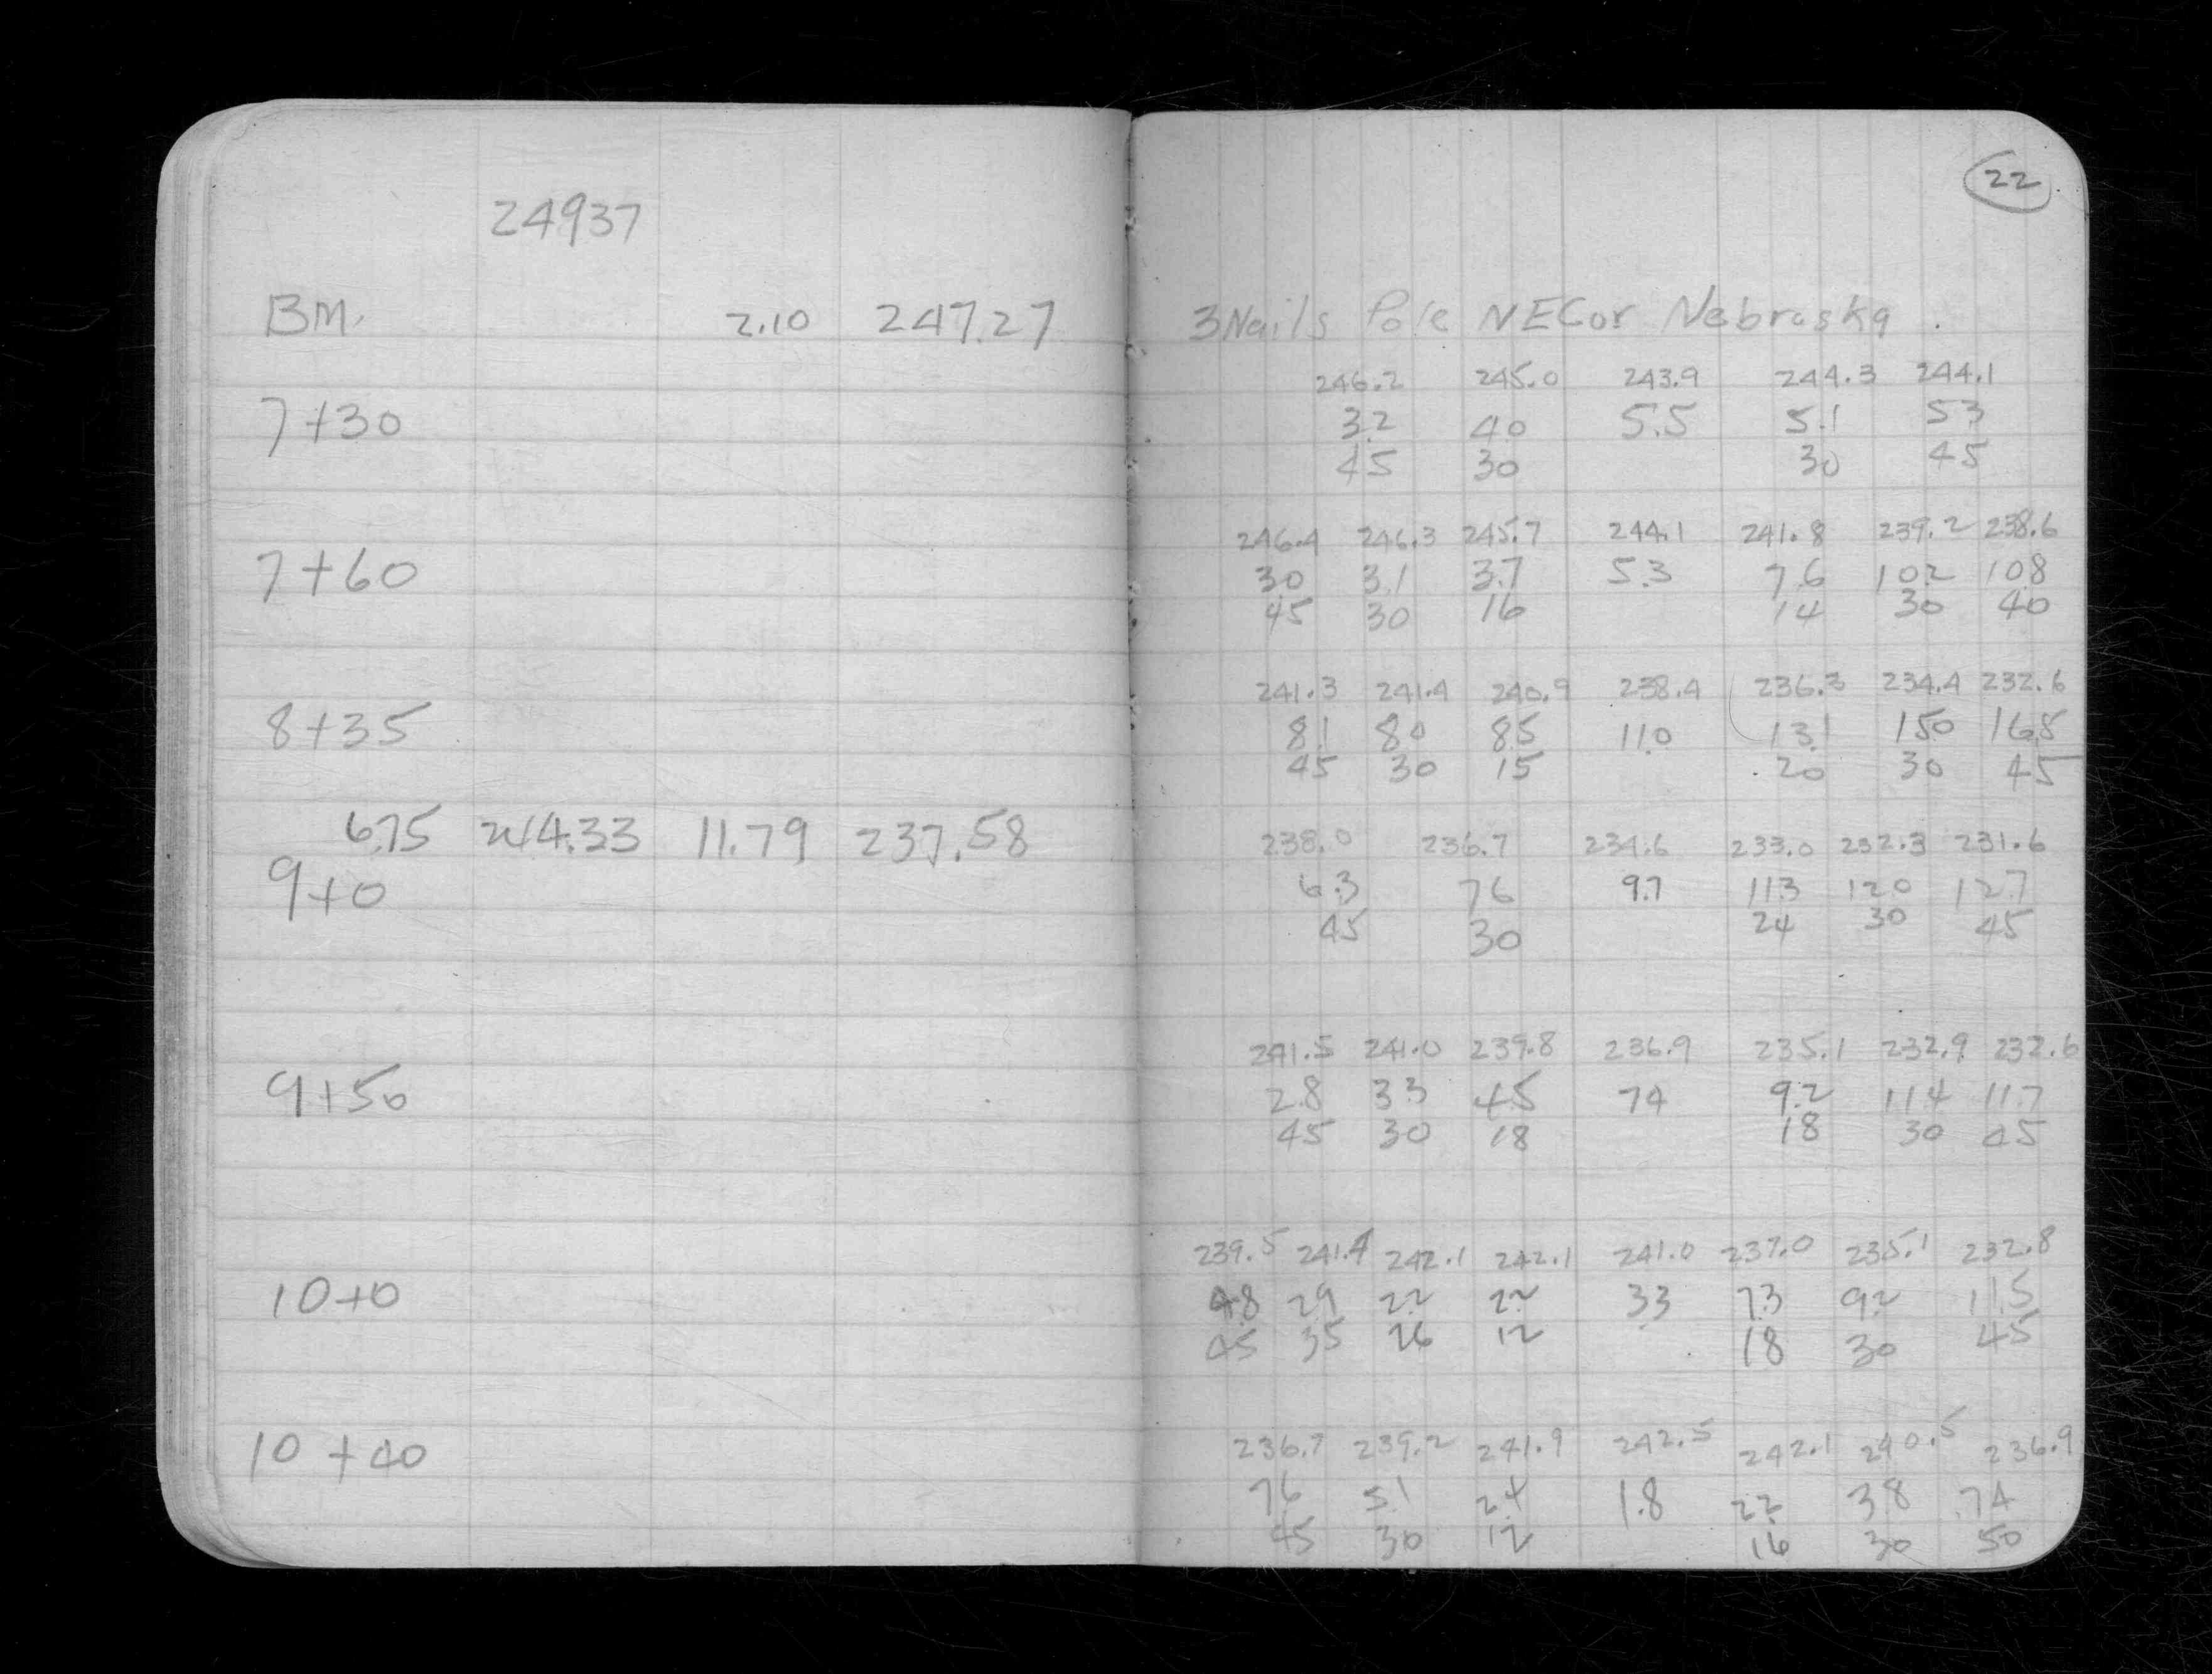 22
24937
BM. 2.10 247.27 3Nails Pole NECor Nebraska.
246.2 245.0 243.9 244.3 244.1
7+30 3.2 40 5.5 5.1 53
45 30 30 45
246.4 246.3 245.7 244.1 241.8 239.2 238.6
7+60 30 3.1 3.7 5.3 7.6 102 108
45 30 16 14 30 40
241.3 241.4 240.9 238.4 236.3 234.4 232.6
8+35 8.1 80 85 11.0 13.1 150 168
45 30 15 20 30 45
6.75 244.33 11.79 237.58 238.0 236.7 234.6 233.0 232.3 231.6
9+0 6.3 76 9.7 113 120 127
45 30 24 30 45
241.5 241.0 239.8 236.9 235.1 232.9 232.6
9+50 2.8 33 45 74 9.2 114 11.7
45 30 18 18 30 45
239.5 241.4 242.1 242.1 241.0 237.0 235.1 232.8
10+0 48 29 22 22 33 73 92 11.5
45 35 26 12 18 30 45
236.7 239.2 241.9 242.5 242.1 240.5 236.9
10+40 76 51 2.4 1.8 22 38 74
45 30 12 16 30 50